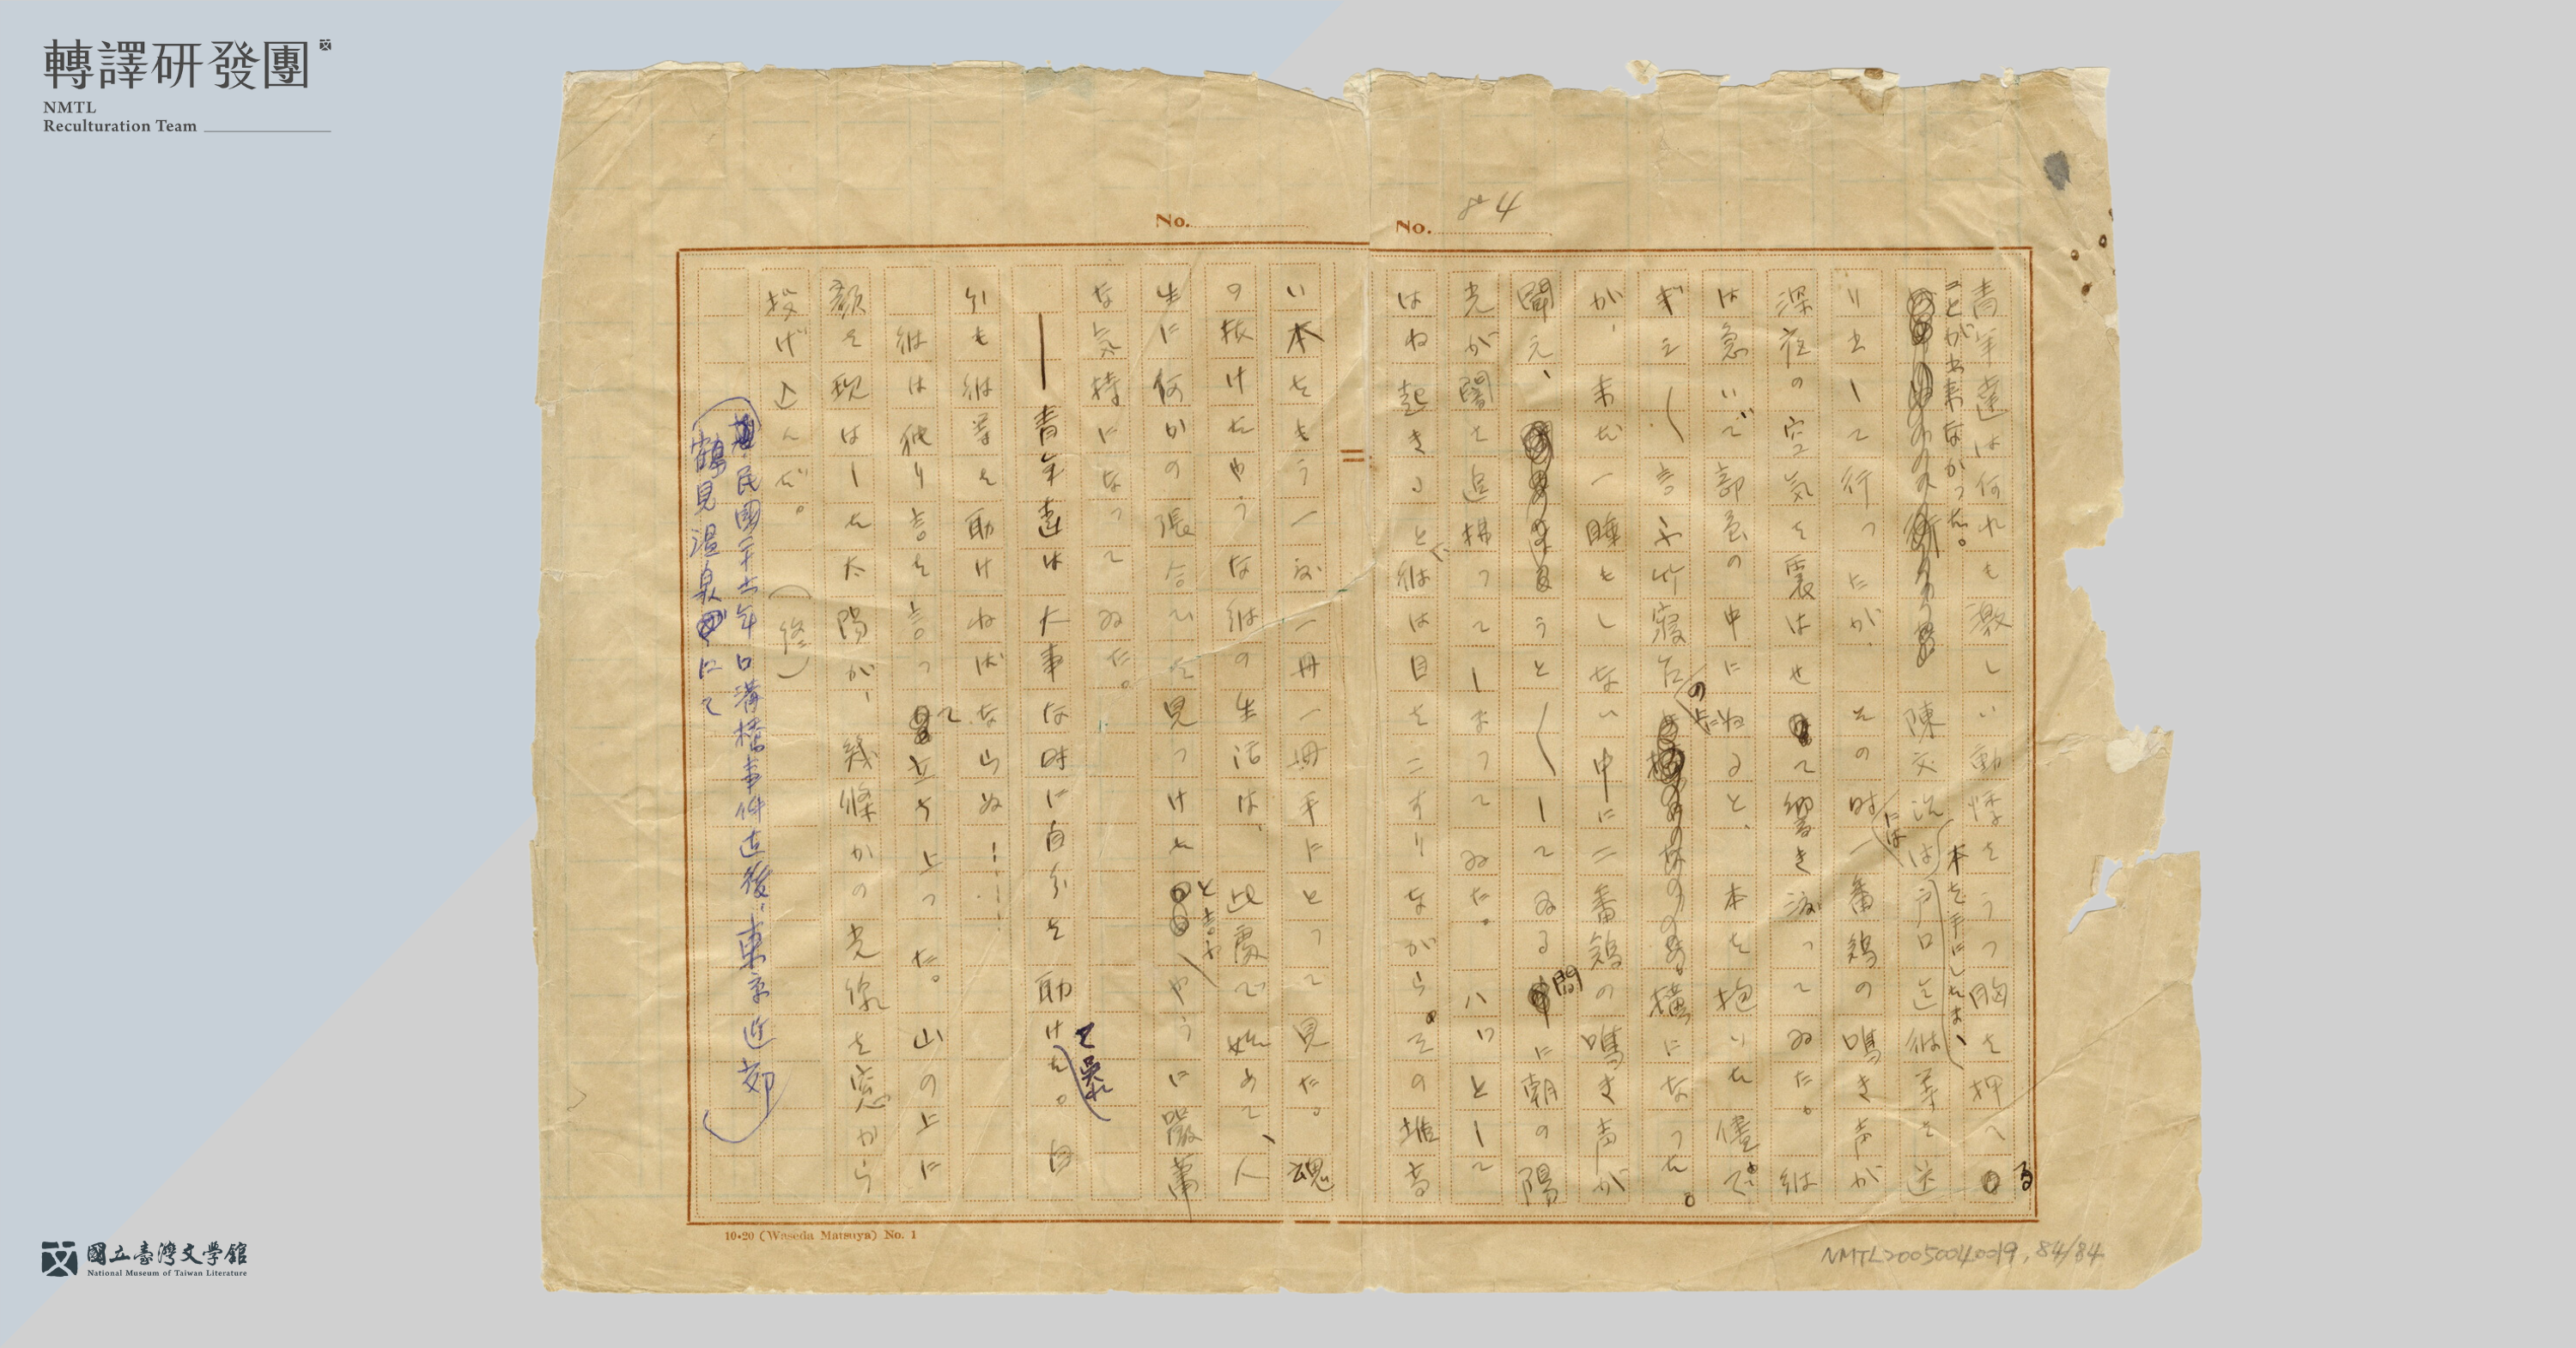 轉譯研發團
NMTL
Reculturation Team
No. 84
No.
青年達は何れも激しい動悸をうつ胸を押へる
ことが出来なかった。
陳文治は戸口迄彼等を送
本を手にしたまゝ
り出して行ったが、その時一番鶏の鳴き声が
には
深夜の空気を震はせて響き渡ってゐた。彼
は急いで部屋の中にねると、本を抱いた儘で、
ギシ〱言ふ竹寝台の上に横になった。
が、未だ一睡もしない中に二番鶏の鳴き声が
聞え、うと〱してゐる間に朝の陽
光が闇を追拂ってしまってゐた。ハッとして
はね起きると彼は目をこすりながら。その堆高
い本をもう一度一冊一冊手にとって見た。魂
の抜けたやうな彼の生活は、此處で始めて、人
生に何かの張合ひを見つけたと言ふやうに嚴肅
な気持になってゐた。
──青年達は大事な時に自分を助けて呉れた。自
分も彼等を助けねばならぬ……
彼は独り言を言って立ち上った。山の上に
顔を現はした太陽が、幾條かの光線を窓から
投げ込んだ。（終）
（民國二十六年口溝橋事件直後、東京近郊
鶴見温泉にて）
10·20 (Waseda Matsuya) No. 1
NMTL20050040019, 84/84
國立臺灣文學館
National Museum of Taiwan Literature